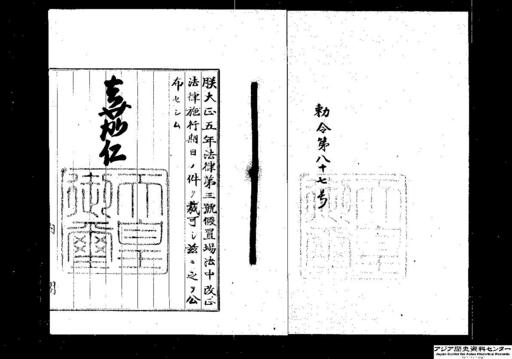 勅令第八十七号
朕大正五年法律第三號假置場法中改正
法律施行期日ノ件ヲ裁可シ茲ニ之ヲ公
布セシム
嘉仁
天皇
御璽
内閣
アジア歴史資料センター
Japan Center for Asian Historical Records